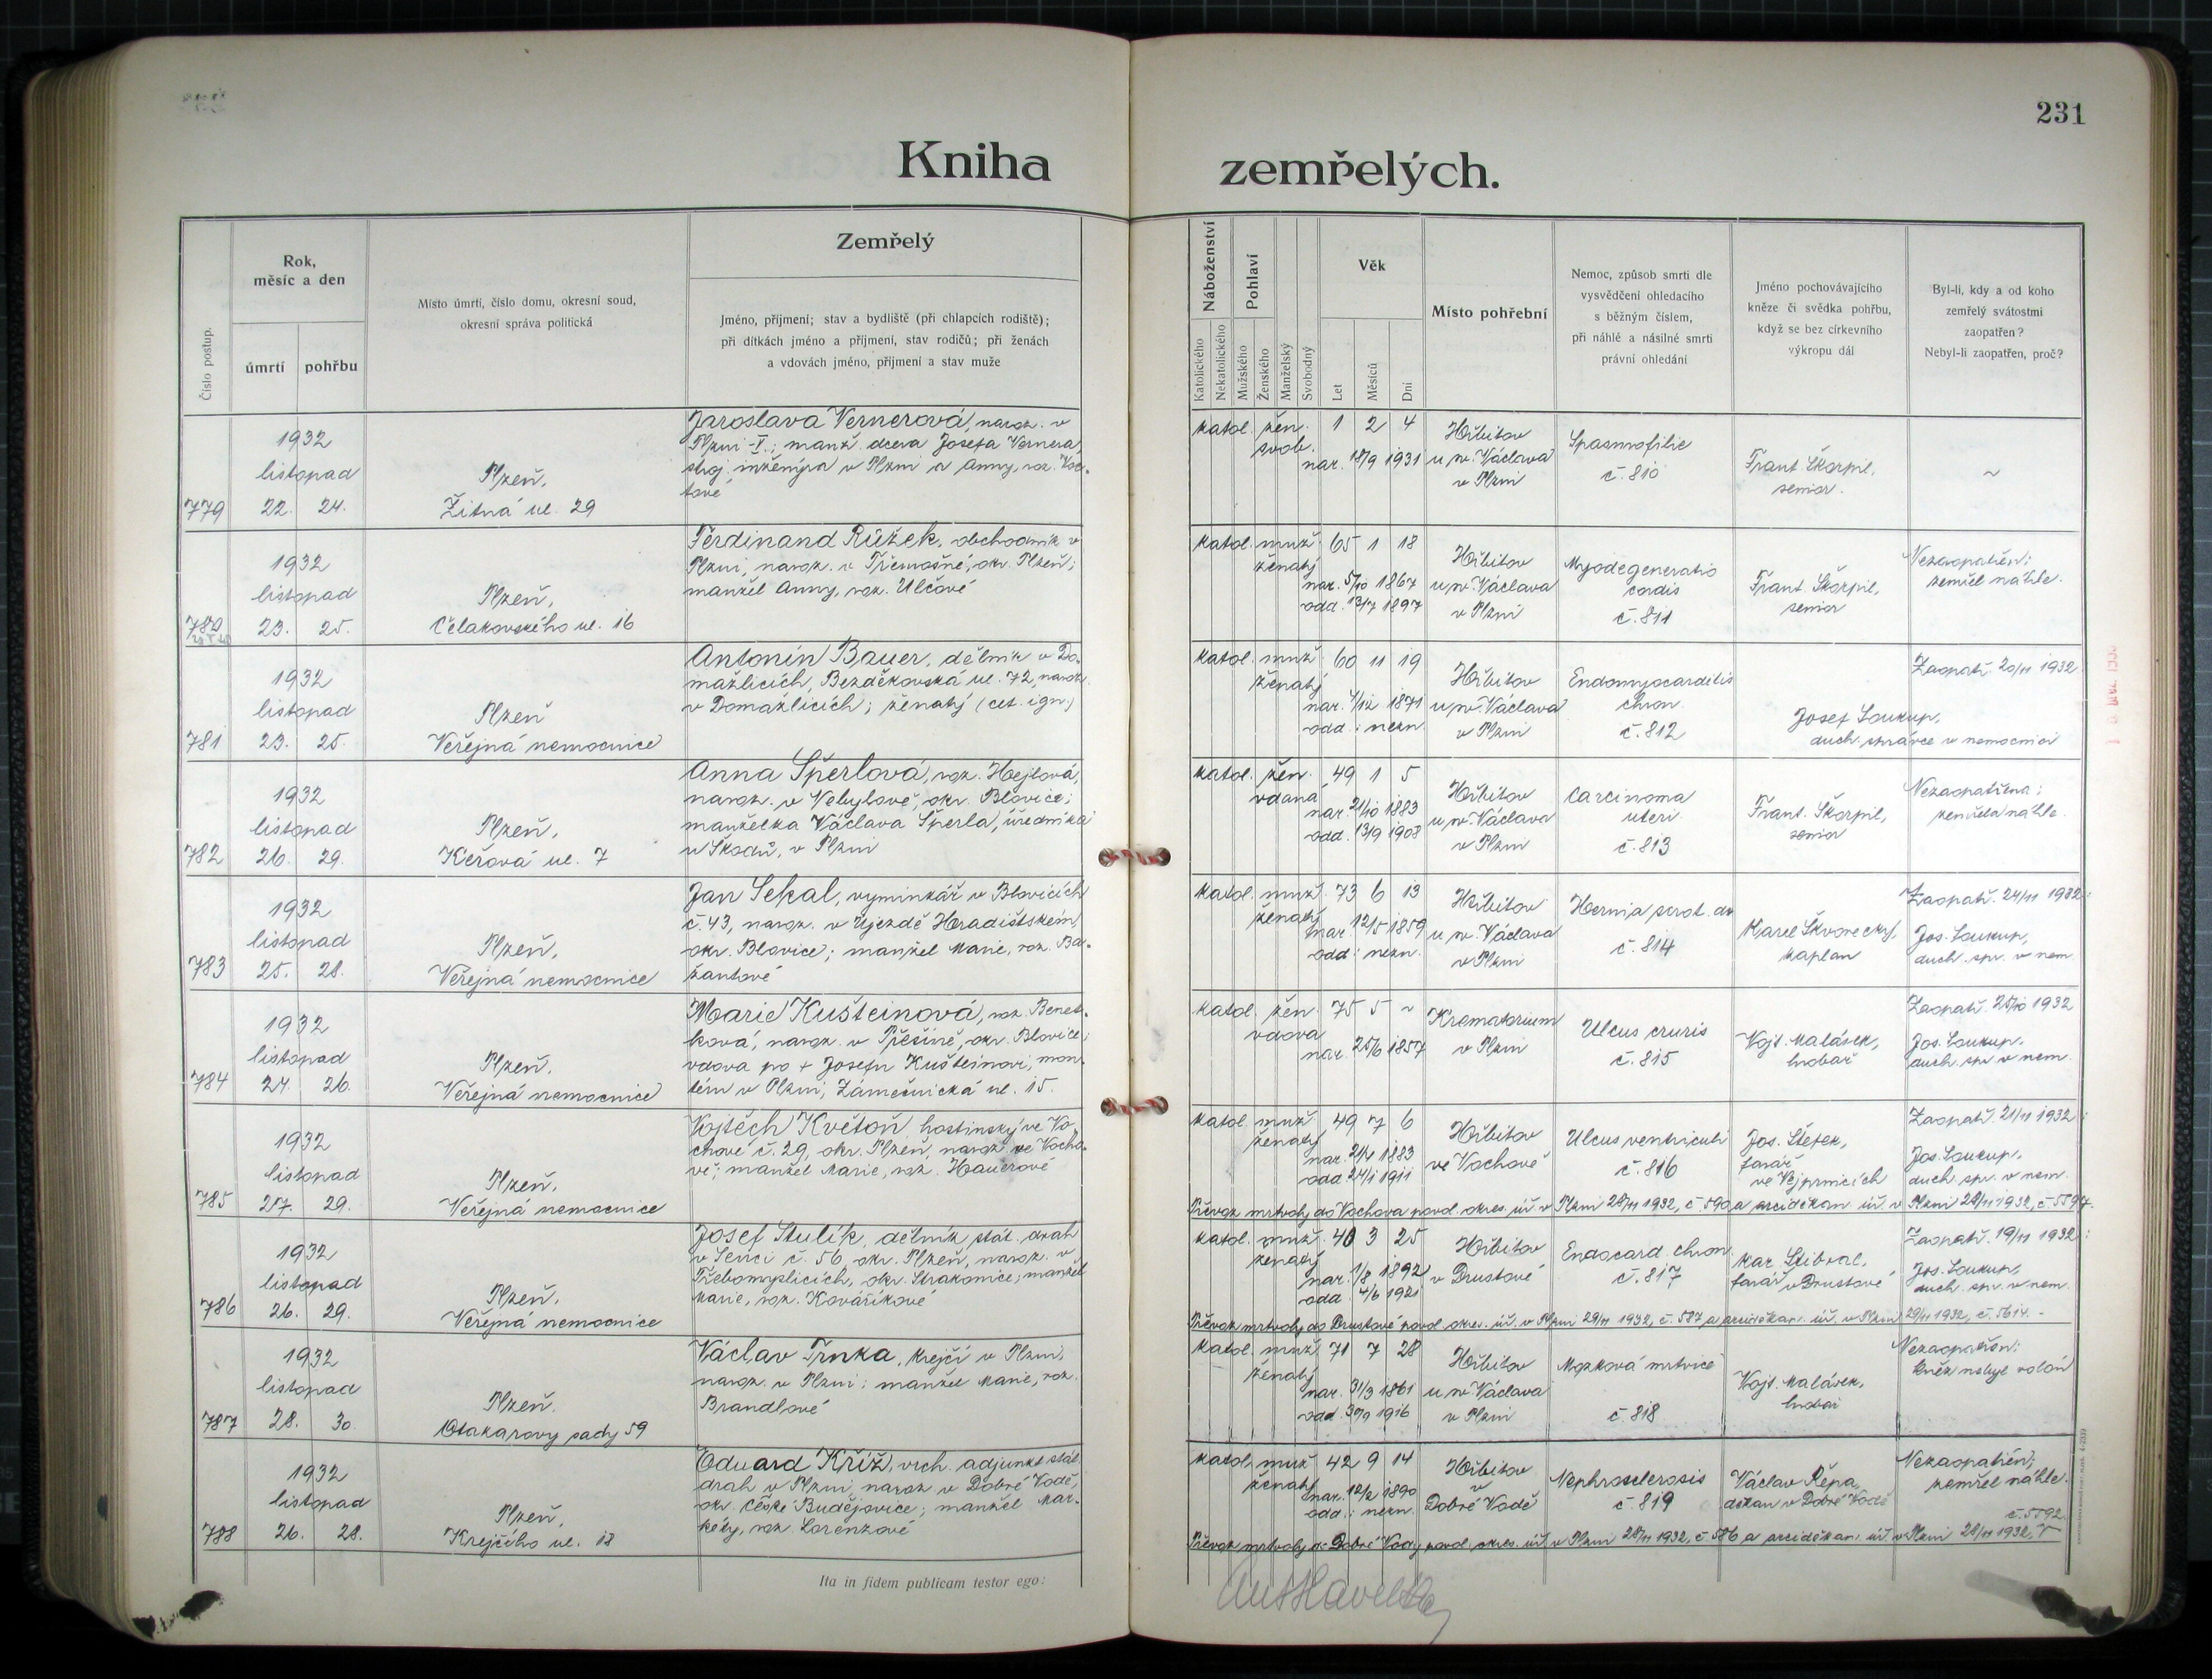 231
Kniha zemřelých.
Číslo postup.
Rok,
měsíc a den
úmrtí
pohřbu
Místo úmrtí, číslo domu, okresní soud,
okresní správa politická
Zemřelý
Jméno, příjmení; stav a bydliště (při chlapcích rodiště);
při dítkách jméno a příjmení, stav rodičů; při ženách
a vdovách jméno, příjmení a stav muže
Náboženství
Katolického
Nekatolického
Pohlaví
Mužského
Ženského
Manželský
Svobodný
Věk
Let
Měsíců
Dní
Místo pohřební
Nemoc, způsob smrti dle
vysvědčení ohledacího
s běžným číslem,
při náhlé a násilné smrti
právní ohledání
Jméno pochovávajícího
kněze či svědka pohřbu,
když se bez církevního
výkropu dál
Byl-li, kdy a od koho
zemřelý svátostmi
zaopatřen?
Nebyl-li zaopatřen, proč?
779
1932
listopad
22. 24.
Plzeň,
Žitná ul. 29
Jaroslava Vernerová, naroz. v
Plzni-I.; manž. dcera Josefa Vernera,
stroj. inženýra v Plzni a Anny, roz.
katol. žen. 1 2 4
svob.
nar. 18/9 1931
Hřbitov
u sv. Václava
v Plzni
Spasmofilie
č. 810
Frant. Škorpil,
senior.
~
780
1932
listopad
23. 25.
Plzeň,
Čelakovského ul. 16
Ferdinand Růžek, obchodník v
Plzni, naroz. v Třemošné, okr. Plzeň;
manžel Anny, roz. Ulčové
katol. muž. 65 1 18
ženatý
nar. 5/10 1867
odd. 13/7 1897
Hřbitov
u sv. Václava
v Plzni
Myodegeneratio
cordis
č. 811
Frant. Škorpil,
senior
Nezaopatřen;
zemřel náhle.
781
1932
listopad
23. 25.
Plzeň
Veřejná nemocnice
Antonín Bauer, dělník v Do-
mažlicích, Bezděkovská ul. 72, naroz.
v Domažlicích; ženatý (cet. ign.)
katol. muž. 60 11 19
ženatý
nar. 4/12 1871
odd.: nezn.
Hřbitov
u sv. Václava
v Plzni
Endomyocarditis
chron.
č. 812
Zaopatř. 20/11 1932
Josef Soukup,
duch. správce v nemocnici
782
1932
listopad
26. 29.
Plzeň,
Keřová ul. 7
Anna Šperlová, roz. Hejlová,
naroz. v Vebylově, okr. Blovice;
manželka Václava Šperla, úředníka
u Škodů, v Plzni
katol. žen. 49 1 5
vdaná
nar. 21/10 1883
odd. 13/9 1908
Hřbitov
u sv. Václava
v Plzni
Carcinoma
uteri
č. 813
Frant. Škorpil,
senior
Nezaopatřena;
zemřela náhle.
783
1932
listopad
25. 28.
Plzeň,
Veřejná nemocnice
Jan Sekal, vyminkář v Blovicích
č. 43, naroz. v Újezdě Hradištském,
okr. Blovice; manžel Marie, roz. Ba-
žantové
katol. muž. 73 6 13
ženatý
nar. 12/5 1859
odd.: nezn.
Hřbitov
u sv. Václava
v Plzni
Hernia scrot. dx
č. 814
Karel Škvorecký,
kaplan
Zaopatř. 24/11 1932:
Jos. Soukup,
duch. spr. v nem.
784
1932
listopad
24. 26.
Plzeň,
Veřejná nemocnice
Marie Kušteinová, roz. Benet-
ková, naroz. v Přešíně, okr. Blovice;
vdova po + Josefu Kušteinovi, mon-
térn v Plzni, Zámečnická ul. 15.
katol. žen. 75 5 ~
vdova
nar. 25/6 1857
Krematorium
v Plzni
Ulcus cruris
č. 815
Vojt. Malásek,
hrobař
Zaopatř. 25/10 1932
Jos. Soukup,
duch. spr. v nem.
785
1932
listopad
27. 29.
Plzeň,
Veřejná nemocnice
Vojtěch Květoň, hostinský ve Vo-
chově č. 29, okr. Plzeň, naroz. ve Vocho-
vě, manžel Marie, roz. Hauerové
katol. muž. 49 7 6
ženatý
nar. 21/4 1883
odd. 24/1 1911
Hřbitov
ve Vochově
Ulcus ventriculi
č. 816
Jos. Štefek,
farář
ve Vejprnicích
Zaopatř. 21/11 1932:
Jos. Soukup,
duch. spr. v nem.
Převoz mrtvoly do Vochova povol. okres. úř. v Plzni 28/11 1932, č. 590, a arciděkan. úř. v Plzni 28/11 1932, č. 5597.
786
1932
listopad
26. 29.
Plzeň,
Veřejná nemocnice
Josef Stulík, dělník stát. drah
v Senci č. 56, okr. Plzeň, naroz. v
Třebomyslicích, okr. Strakonice; manžel
Marie, roz. Kovaříkové
katol. muž. 40 3 25
ženatý
nar. 1/8 1892
odd. 4/6 1921
Hřbitov
v Druztové
Endocard. chron.
č. 817
Kar. Stibral,
farář v Druztové
Zaopatř. 19/11 1932:
Jos. Soukup,
duch. spr. v nem.
Převoz mrtvoly do Druztové povol. okres. úř. v Plzni 29/11 1932, č. 587 a arciděkan. úř. v Plzni 29/11 1932, č. 5614.
787
1932
listopad
28. 30.
Plzeň.
Otakarovy sady 59
Václav Trnka, krejčí v Plzni,
naroz. v Plzni; manžel Marie, roz.
Brandlové
katol. muž. 71 7 28
ženatý
nar. 31/3 1861
odd. 30/9 1916
Hřbitov
u sv. Václava
v Plzni
Mozková mrtvice
č. 818
Vojt. Malásek,
hrobař
Nezaopatřen:
kněz nebyl volán
788
1932
listopad
26. 28.
Plzeň,
Krejčího ul. 18
Eduard Kříž, vrch. adjunkt stát.
drah v Plzni, naroz. v Dobré Vodě,
okr. České Budějovice; manžel Mar-
kéty, roz. Lorenzové
katol. muž. 42 9 14
ženatý
nar. 12/2 1890
odd.: nezn.
Hřbitov
v
Dobré Vodě
Nephrosclerosis
č. 819
Václav Řepa,
děkan v Dobré Vodě
Nezaopatřen;
zemřel náhle.
č. 5592.
Převoz mrtvoly do Dobré Vody povol. okres. úř. v Plzni 28/11 1932, č. 586 a arciděkan. úř. v Plzni 28/11 1932,
Ita in fidem publicam testor ego: